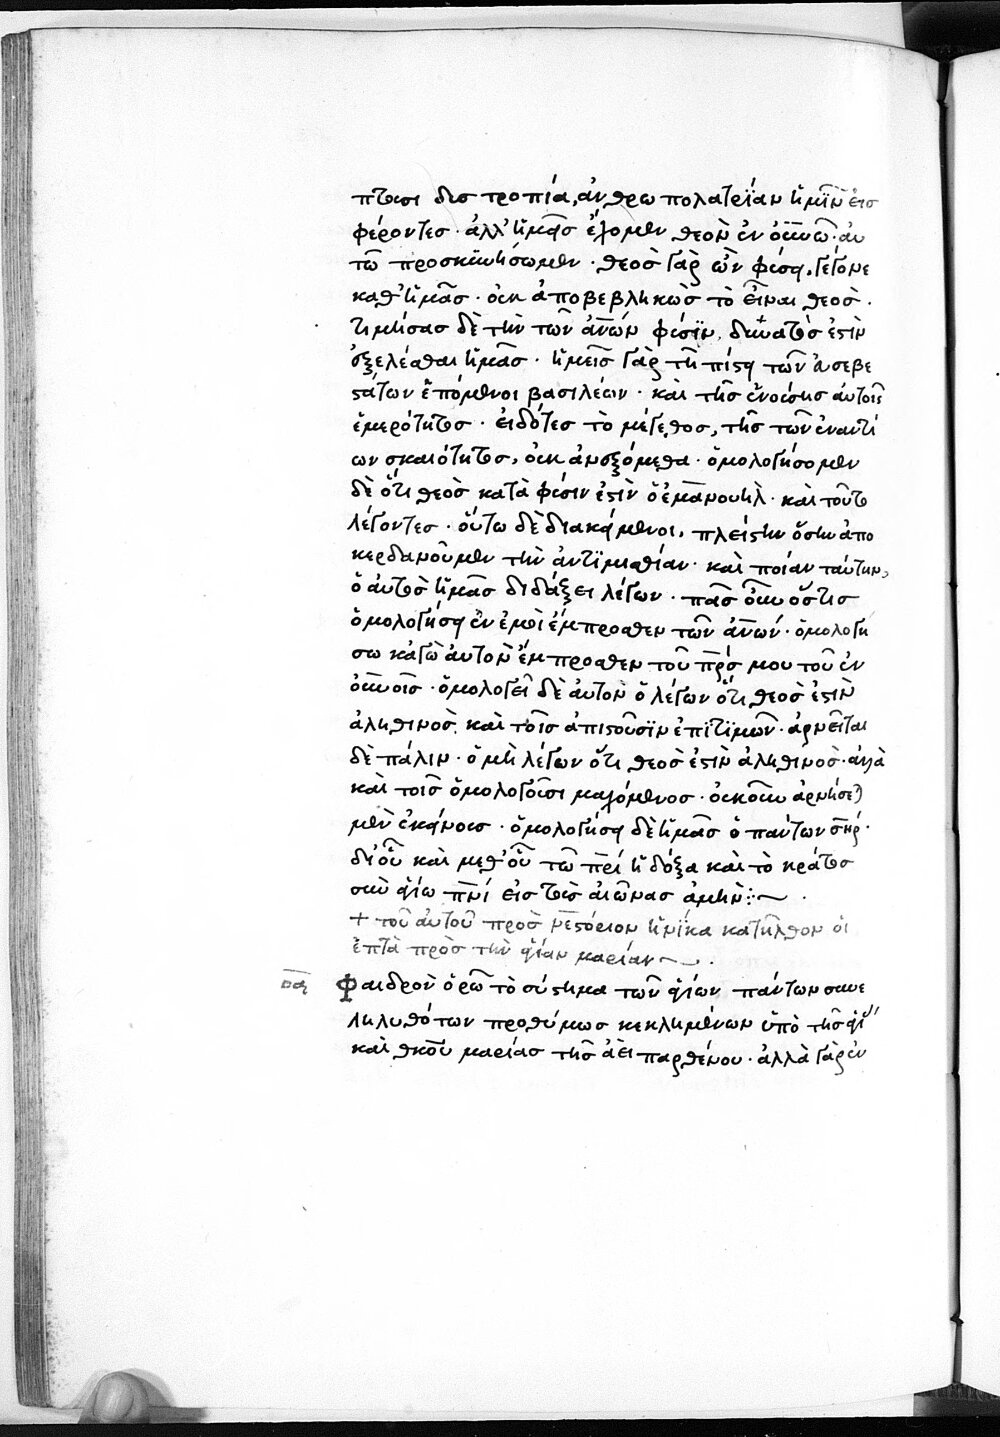 πτουσι δυστροπία, ἀνθρωπολατρείαν ἡμῖν εἰσ
φέροντες · ἀλλ' ἡμεῖς ἔχομεν θεὸν ἐν οὐνῶ · αυ
τῶ προσκυνήσωμεν · θεὸς γὰρ ὢν φύσει, γέγονε
καθ' ἡμᾶς · οὐκ ἀποβεβληκὼς τὸ εἶναι θεὸς ·
τιμήσας δὲ τὴν τῶν ἀνῶν φύσιν, δυνατὸς ἐστὶν
ἐξελέσθαι ἡμᾶς · ἡμεῖς γὰρ τῆ πίστει τῶν εὐσεβε
στάτων ἑπόμενοι βασιλέων · καὶ τῆς ἐνούσης αὐτοῖς
ἡμερότητος · εἰδότες τὸ μέγεθος, τῆς τῶν ἐναντί
ων σκαιότητος, οὐκ ἀνεξόμεθα · ὁμολογήσομεν
δὲ ὅτι θεὸς κατὰ φύσιν ἐστὶν ὁ ἐμμανουήλ · καὶ τοῦτο
λέγοντες · οὕτω δὲ διακείμενοι, πλείστην ὅσην ἀπο
κερδανοῦμεν τὴν ἀντιμισθίαν · καὶ ποίαν ταύτην,
ὁ αὐτὸς ἡμᾶς διδάξει λέγων · πᾶς οὖν ὅστις
ὁμολογήσει ἐν ἐμοὶ ἔμπροσθεν τῶν ἀνῶν · ὁμολογή
σω κἀγὼ αὐτὸν ἔμπροσθεν τοῦ πρς μου τοῦ ἐν
οὐνοις · ὁμολογεῖ δὲ αὐτὸν ὁ λέγων ὅτι θεὸς ἐστὶν
ἀληθινὸς καὶ τοῖς ἀπιστοῦσιν ἐπιτιμῶν · ἀρνεῖται
δὲ πάλιν · ὁ μὴ λέγων ὅτι θεὸς ἐστὶν ἀληθινὸς · ἀλλὰ
καὶ τοῖς ὁμολογοῦσι μαχόμενος · οὐκοῦν ἀρνήσεται
μὲν ἐκείνοις · ὁμολογήσει δὲ ἡμᾶς ὁ πάντων σηρ ·
δι' οὗ καὶ μεθ' οὗ τῶ πρὶ ἡ δόξα καὶ τὸ κράτος
σὺν ἁγίω πνὶ εἰς τοὺς αἰῶνας ἀμήν :~
+ τοῦ αὐτοῦ πρὸς νεστόριον ἡνίκα κατῆλθον οἱ
ἑπτὰ πρὸς τὴν ἁγίαν μαρίαν ~ ·
Φαιδρὸν ὁρῶ τὸ σύστημα τῶν ἁγίων πάντων συνε
ληλυθότων προθύμως κεκλημένων ὑπὸ τῆς ἁγί
καὶ θκου μαρίας τῆς ἀεὶ παρθένου · ἀλλὰ γὰρ ἐν